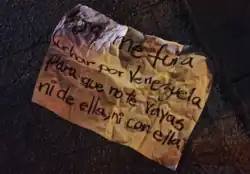 me fui a
luchar por Venezuela
para que no te vayas
ni de ella, ni con ella.